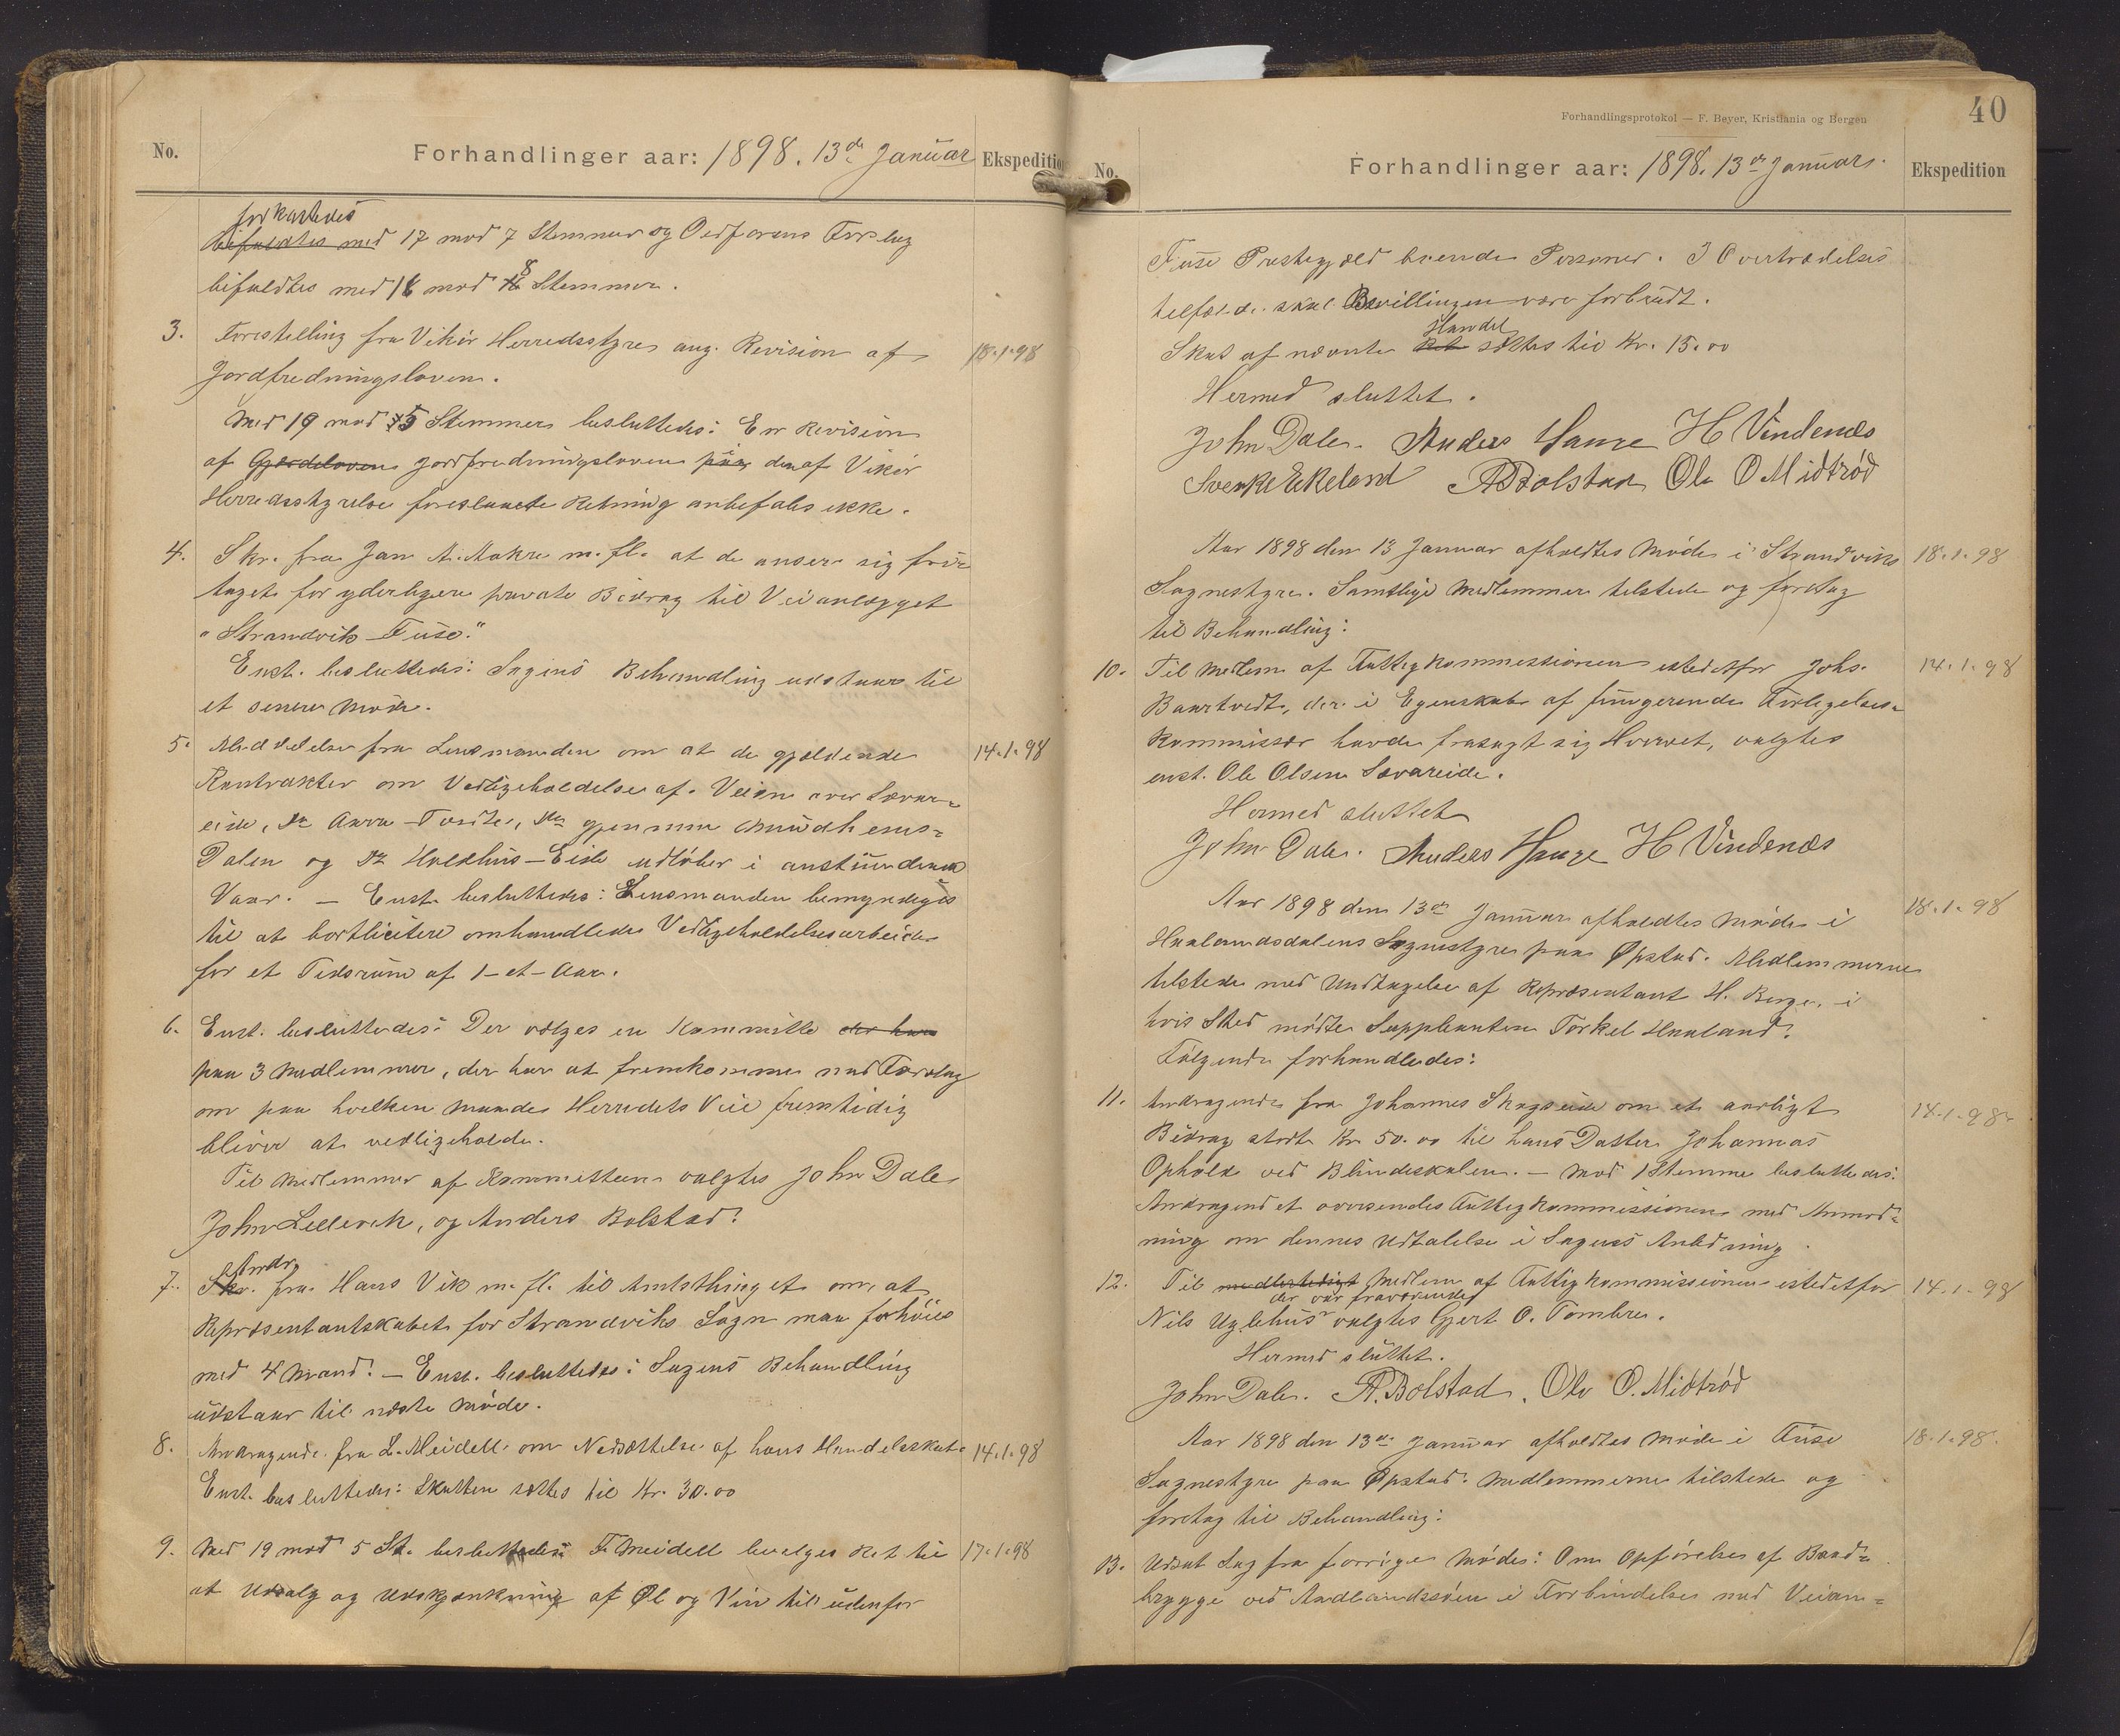 No.
Forhandlinger aar: 1898. 13de Januar
Ekspedition
forkastedes
bifaldtes med 17 mod 7 Stemmer og Ordførerens Forslag
bifaldtes med 16 mod 8 Stemmer.
3. Forestilling fra Vikør Herredsstyre ang. Revision af 18.1.98
Jordfredningsloven.
Med 19 mod 5 Stemmer besluttedes: En Revision
af Gjærdeloven Jordfredningsloven paa den af Vikør
Herredsstyrelse foreslaaede Retning anbefales ikke.
4. Skr. fra Jan A. Aakre m. fl. at de anser sig fri-
taget for yderligere private Bidrag til Veianlægget
"Strandvik-Fuse."
Enst. besluttedes: Sagens Behandling udstaar til
et senere Møde.
5. Meddelelse fra Lensmanden om at de gjældende 14.1.98
Kontrakter om Vedligeholdelse af Veien over Sævar-
eide, Do gjennem
Dalen og Do Holdhus-Eide udløber i anstundende
Vaar. - Enst. besluttedes: Lensmanden bemyndiges
til at bortlicitere omhandlede Vedligeholdelsesarbeide
for et Tidsrum af 1-et-Aar.
6. Enst. besluttedes: Der vælges en Kommitte der har
paa 3 Medlemmer, der har at fremkomme med Forslag
om paa hvilken Maade Herredets Veie fremtidig
bliver at vedligeholde.
Til Medlemmer af Kommitteen valgtes John Dale
John Lillevik, og Anders Bolstad.
Andr.
7. Skr. fra Hans Vik m. fl. til Amtsthinget om, at
Repræsentantskabet for Strandviks Sogn maa forhøies
med 4 Mand. - Enst. besluttedes: Sagens Behandling
udstaar til næste Møde.
8. Andragende fra L. Meidell om Nedsættelse af hans Handelsskat. 14.1.98
Enst. besluttedes: Skatten sættes til Kr. 30.00
9. Med 19 mod 5 St. besluttedes: F. Meidell bevalges Ret til 17.1.98
at Udsalg og Udskjænkning af Øl og Vin til udenfor
Forhandlingsprotokol — F. Beyer, Kristiania og Bergen
40
No.
Forhandlinger aar: 1898. 13de Januar.
Ekspedition
Fuse Prestegjæld boende Personer. I Overtrædelses-
tilfælde skal Bevillingen være forbrudt.
Handel
Skat af nævnte Ret sættes til Kr. 15.00
Hermed sluttet.
John Dale. Anders Hauge H Vindenæs
Svenke Ekeland A Bolstad Ole O Midtrød
Aar 1898 den 13 Januar afholdtes Møde i Strandviks 18.1.98
Sognestyre. Samtlige Medlemmer tilstede og foretog
til Behandling:
10. Til Medlem af Fattigkommissionen istedetfor Johs. 14.1.98
Baartvedt, der i Egenskab af fungerende Forligelses-
kommissær havde frasagt sig Hvervet, valgtes
enst. Ole Olsen Sævareide.
Hermed sluttet
John Dale. Anders Hauge H Vindenæs
Aar 1898 den 13de Januar afholdtes Møde i 18.1.98
Haalandsdalens Sognestyre paa Øpstad. Medlemmerne
tilstede med Undtagelse af Repræsentant H. Berge, i
hvis Sted mødte Suppleanten Torkel Haaland.
Følgende forhandledes:
11. Andragende fra Johannes Skogseide om et aarligt 14.1.98
Bidrag stort Kr. 50.00 til hans Datter Johannas
Ophold ved Blindeskolen. - Mod 1 Stemme besluttedes:
Andragendet oversendes Fattigkommissionen med Anmod-
ning om dennes Udtalelse i Sagens Anledning.
12. Til midlertidigt Medlem af Fattigkommissionen istedetfor 14.1.98
der var fraværende
Nils Uglehus valgtes Gjert O. Tombre.
Hermed sluttet.
John Dale. A. Bolstad. Ole O. Midtrød
Aar 1898 den 13de Januar afholdtes Møde i Fuse 18.1.98.
Sognestyre paa Øpstad. Medlemmerne tilstede og
foretog til Behandling:
13. Udsat Sag fra forrige Møde: Om Opførelse af Baad-
brygge ved i Forbindelse med Veian-